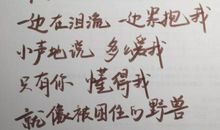 一边在泪流 一边紧抱我
小声地说 多么爱我
只有你 懂得我
就像被困住的野兽